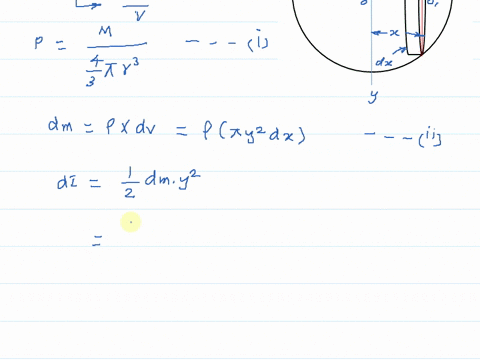 V
ρ = M / (4/3 π r³) --- (i)
x
dx
y
dm = ρ × dv = ρ (π y² dx) --- (ii)
dI = 1/2 dm · y²
=